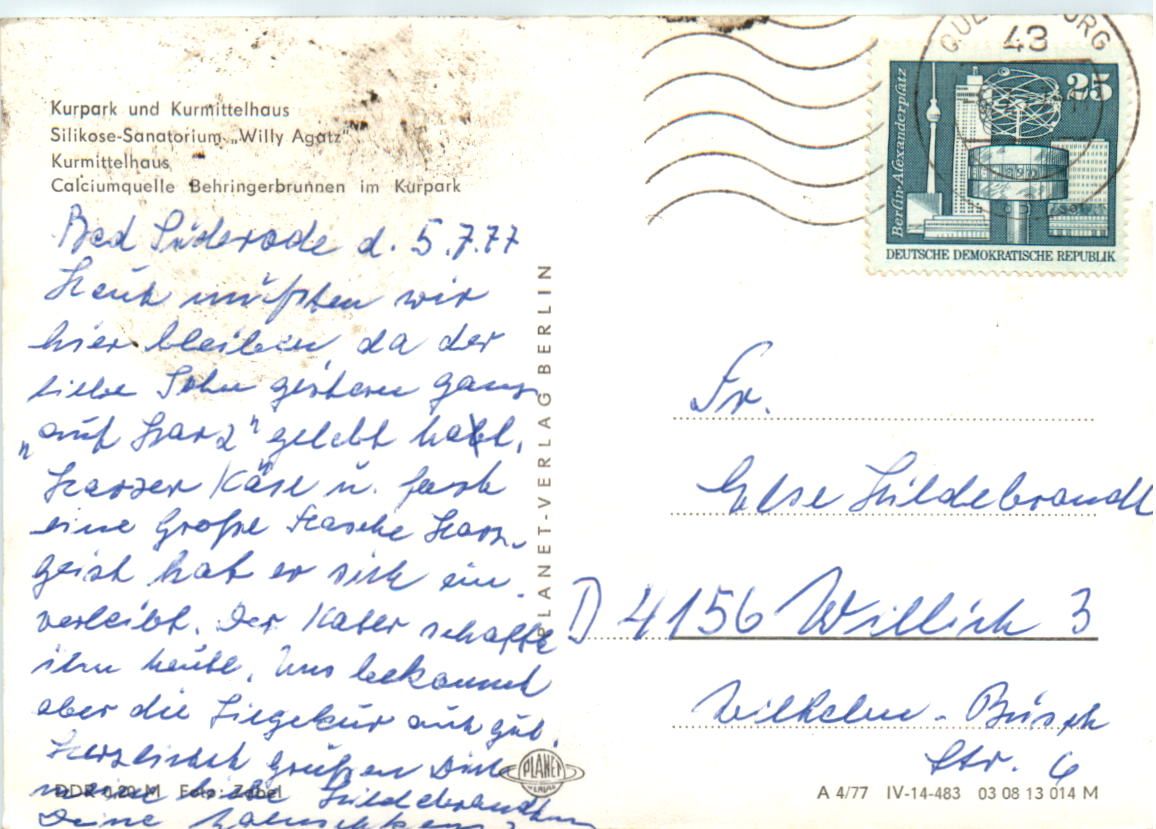 Kurpark und Kurmittelhaus
Silikose-Sanatorium „Willy Agatz"
Kurmittelhaus
Calciumquelle Behringerbrunnen im Kurpark
Bad Suderode d. 5.7.77
Heute mußten wir
hier bleiben, da der
liebe Sohn gestern ganz
„auf Harz" gelebt hat.
Harzer Käse u. fast
eine Große Flasche Harz-
geist hat er sich ein-
verleibt. Der Kater schaffte
ihn heute. Uns bekommt
aber die Liegekur auch gut.
Herzlichst grüßen Dich
meine liebe Hildebrandtin
Deine
DDR 0,20 M Foto: Zebel
PLANET-VERLAG BERLIN
PLANET
VERLAG
43
Berlin-Alexanderplatz
25
DEUTSCHE DEMOKRATISCHE REPUBLIK
Fr.
Else Hildebrandt
D 4156 Willich 3
Wilhelm-Busch
Str. 6
A 4/77 IV-14-483 03 08 13 014 M